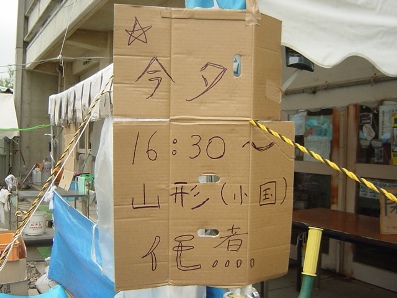 ☆
今夕
16:30〜
山形(小国)
者....